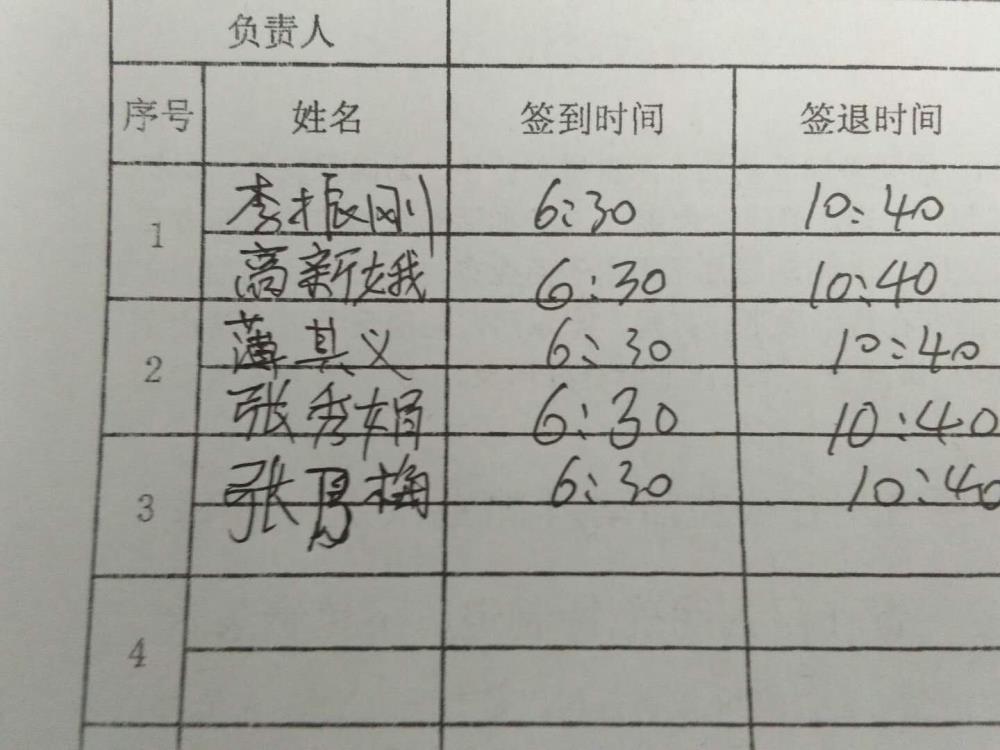 负责人
序号 姓名 签到时间 签退时间
1 李振刚 6:30 10:40
高新娥 6:30 10:40
2 薄其义 6:30 10:40
张秀娟 6:30 10:40
3 张梅 6:30 10:40
4